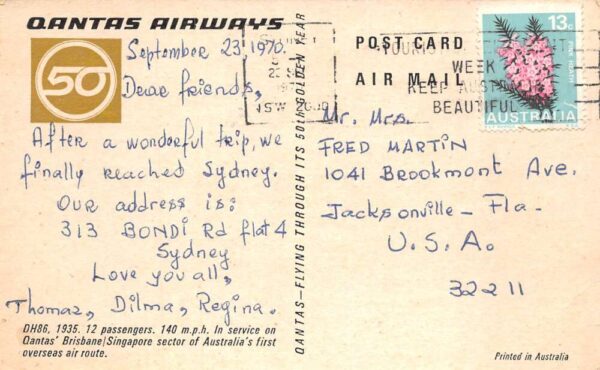 QANTAS AIRWAYS
50
September 23, 1970.
Dear friends,
After a wonderful trip, we
finally reached Sydney.
Our address is:
313 BONDI Rd flat 4
Sydney
Love you all,
Thomaz, Dilma, Regina.
DH86, 1935. 12 passengers. 140 m.p.h. In service on
Qantas' Brisbane/Singapore sector of Australia's first
overseas air route.
QANTAS—FLYING THROUGH ITS 50th GOLDEN YEAR
NSW 2000
POST CARD
AIR MAIL
WEEK
KEEP
BEAUTIFUL
13c
PINK HEATH
AUSTRALIA
Mr. Mrs.
FRED MARTIN
1041 Brookmont Ave.
Jacksonville - Fla -
U.S.A.
32211
Printed in Australia